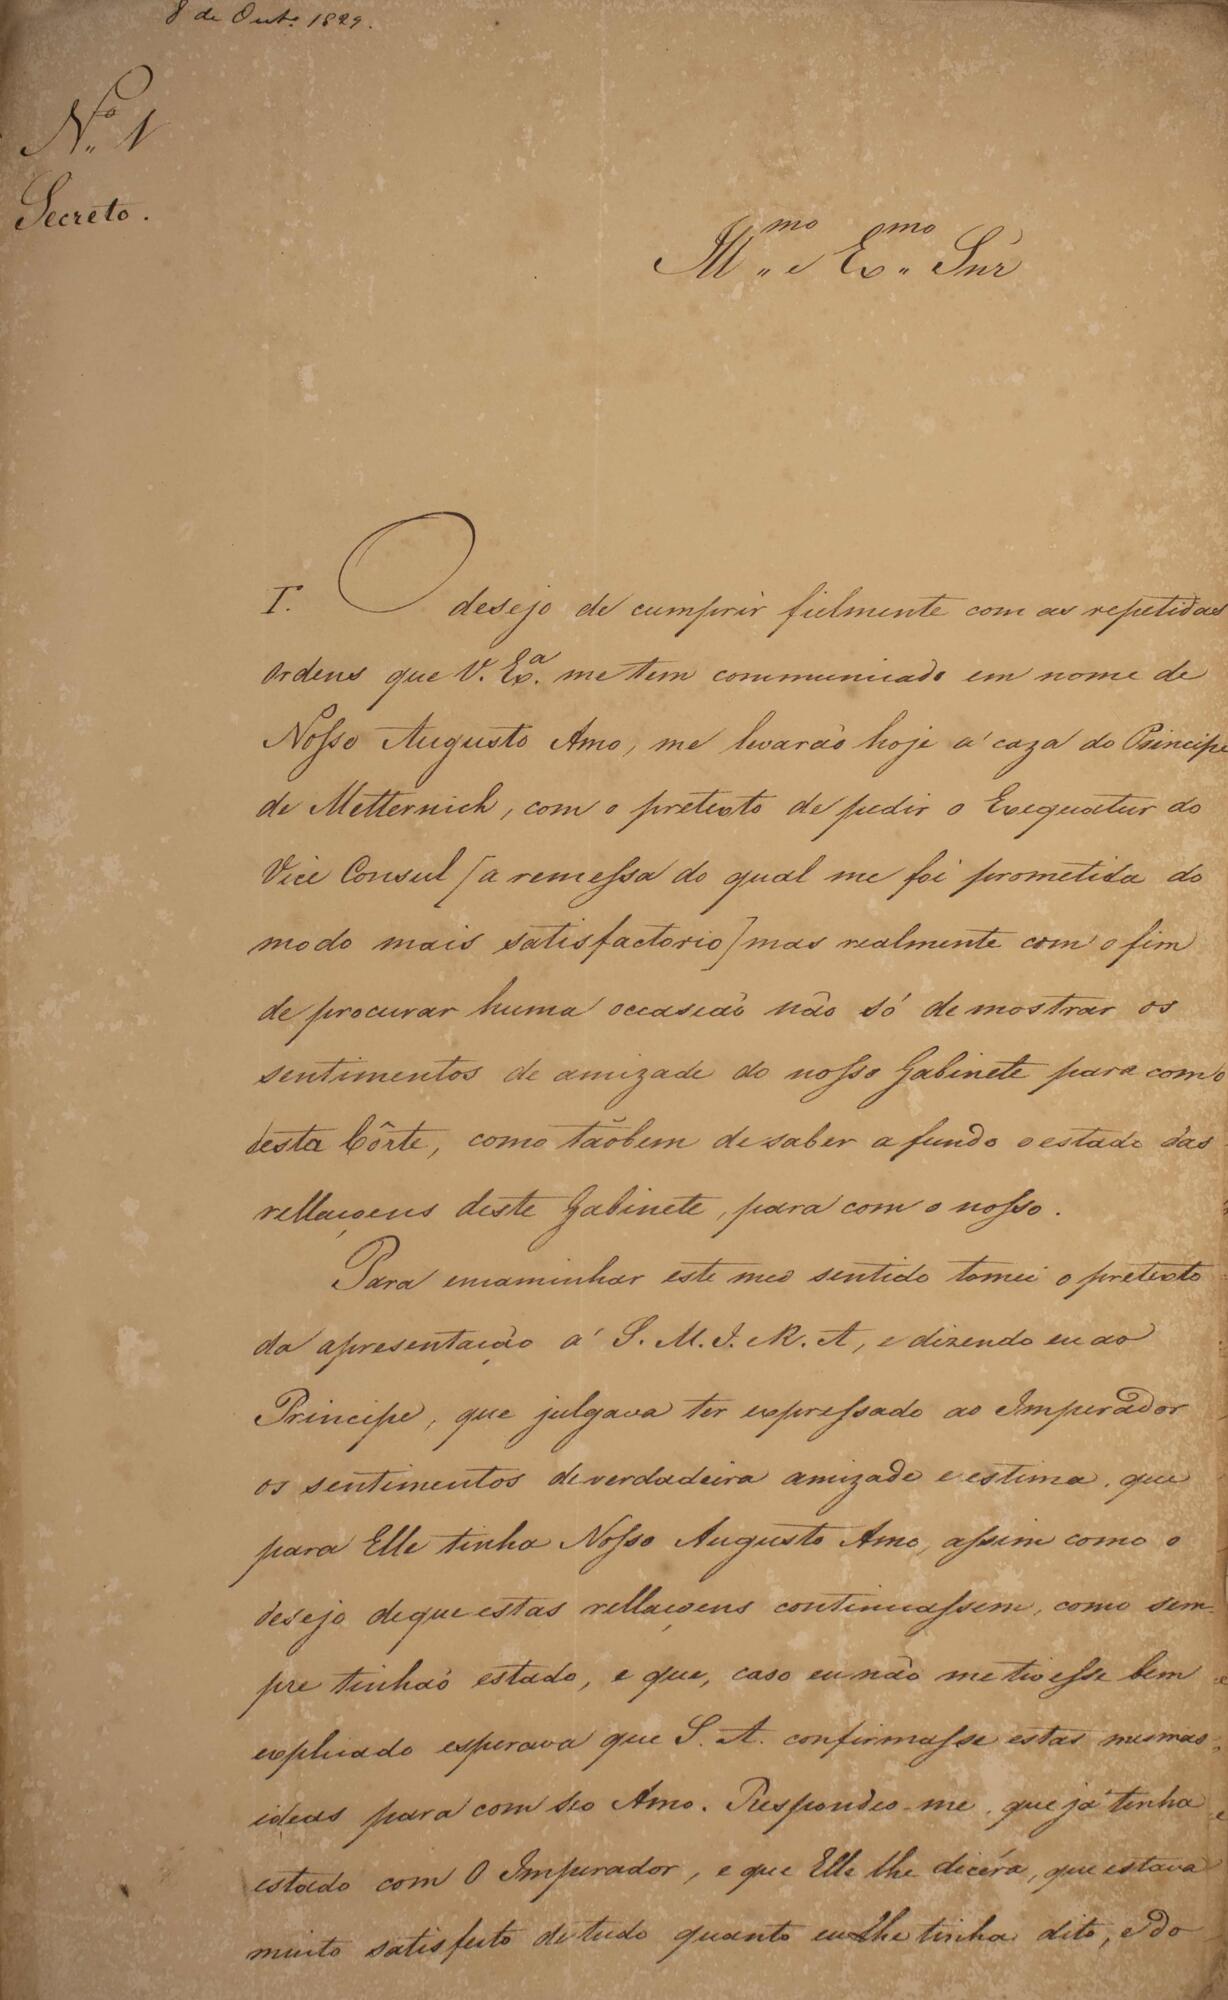 8 de Outo. 1829.
No. 1
Secreto.
Illmo. e Exmo. Snr
I. O desejo de cumprir fielmente com as repetidas
ordens que V. Exa. me tem communicado em nome de
Nosso Augusto Amo, me levarão hoje a' caza do Principe
de Metternich, com o pretexto de pedir o Exequatur do
Vice Consul [a remessa do qual me foi prometida do
modo mais satisfactorio] mas realmente com o fim
de procurar huma occasião não só de mostrar os
sentimentos de amizade do nosso Gabinete para com o
desta Côrte, como tãobem de saber a fundo o estado das
rellaçoens deste Gabinete, para com o nosso.
Para encaminhar este meo sentido tomei o pretexto
da apresentação a' S. M. I. R. A, e dizendo eu ao
Principe, que julgava ter expressado ao Imperador
os sentimentos de verdadeira amizade e estima, que
para Elle tinha Nosso Augusto Amo, assim como o
desejo de que estas rellaçoens continuassem, como sem-
pre tinhão estado, e que, caso eu não me tivesse bem
explicado esperava que S. A. confirmasse estas mesmas
ideas para com seo Amo. Respondeo-me, que já tinha
estado com O Imperador, e que Elle lhe dicéra, que estava
muito satisfeito de tudo quanto eu lhe tinha dito, e do